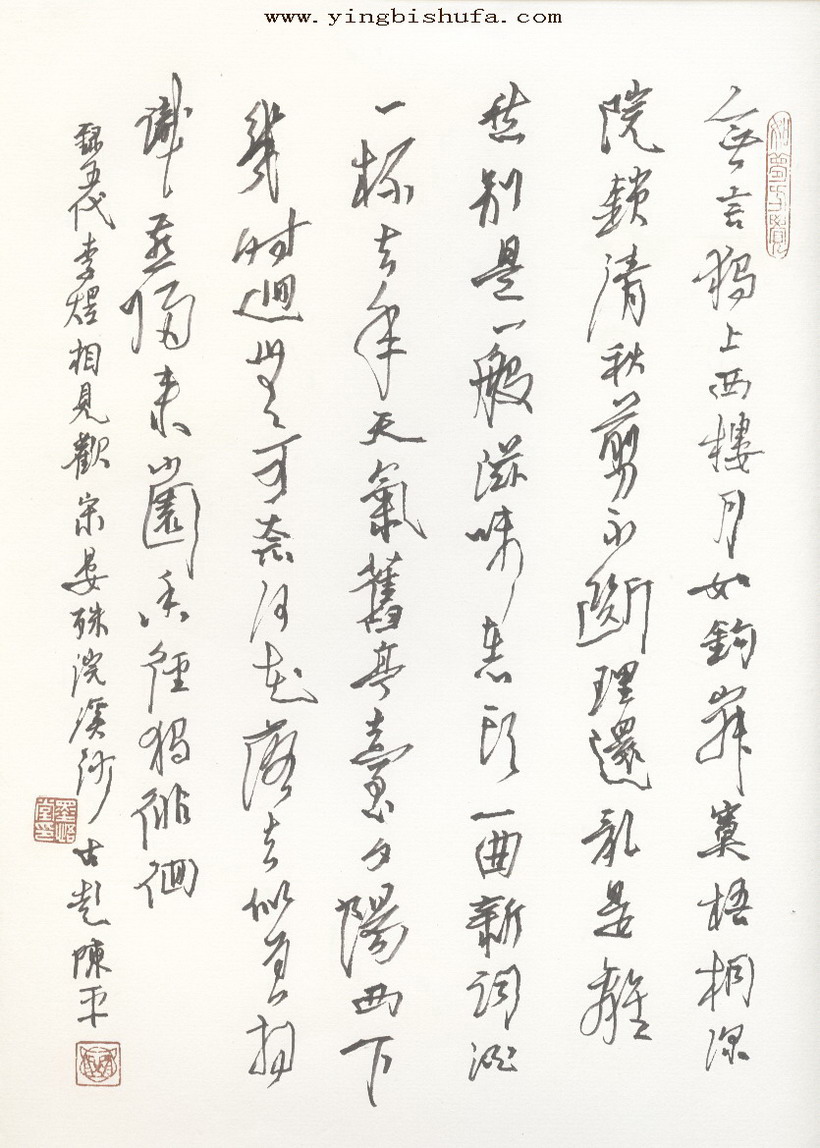 www.yingbishufa.com
無言獨上西樓月如鉤寂寞梧桐深
院鎖清秋剪不斷理還亂是離
愁别是一般滋味在心頭一曲新詞酒
一杯去年天氣舊亭臺夕陽西下
幾時迴無可奈何花落去似曾相
識燕歸來小園香徑獨徘徊
録五代李煜相見歡宋晏殊浣溪沙古彭陳平